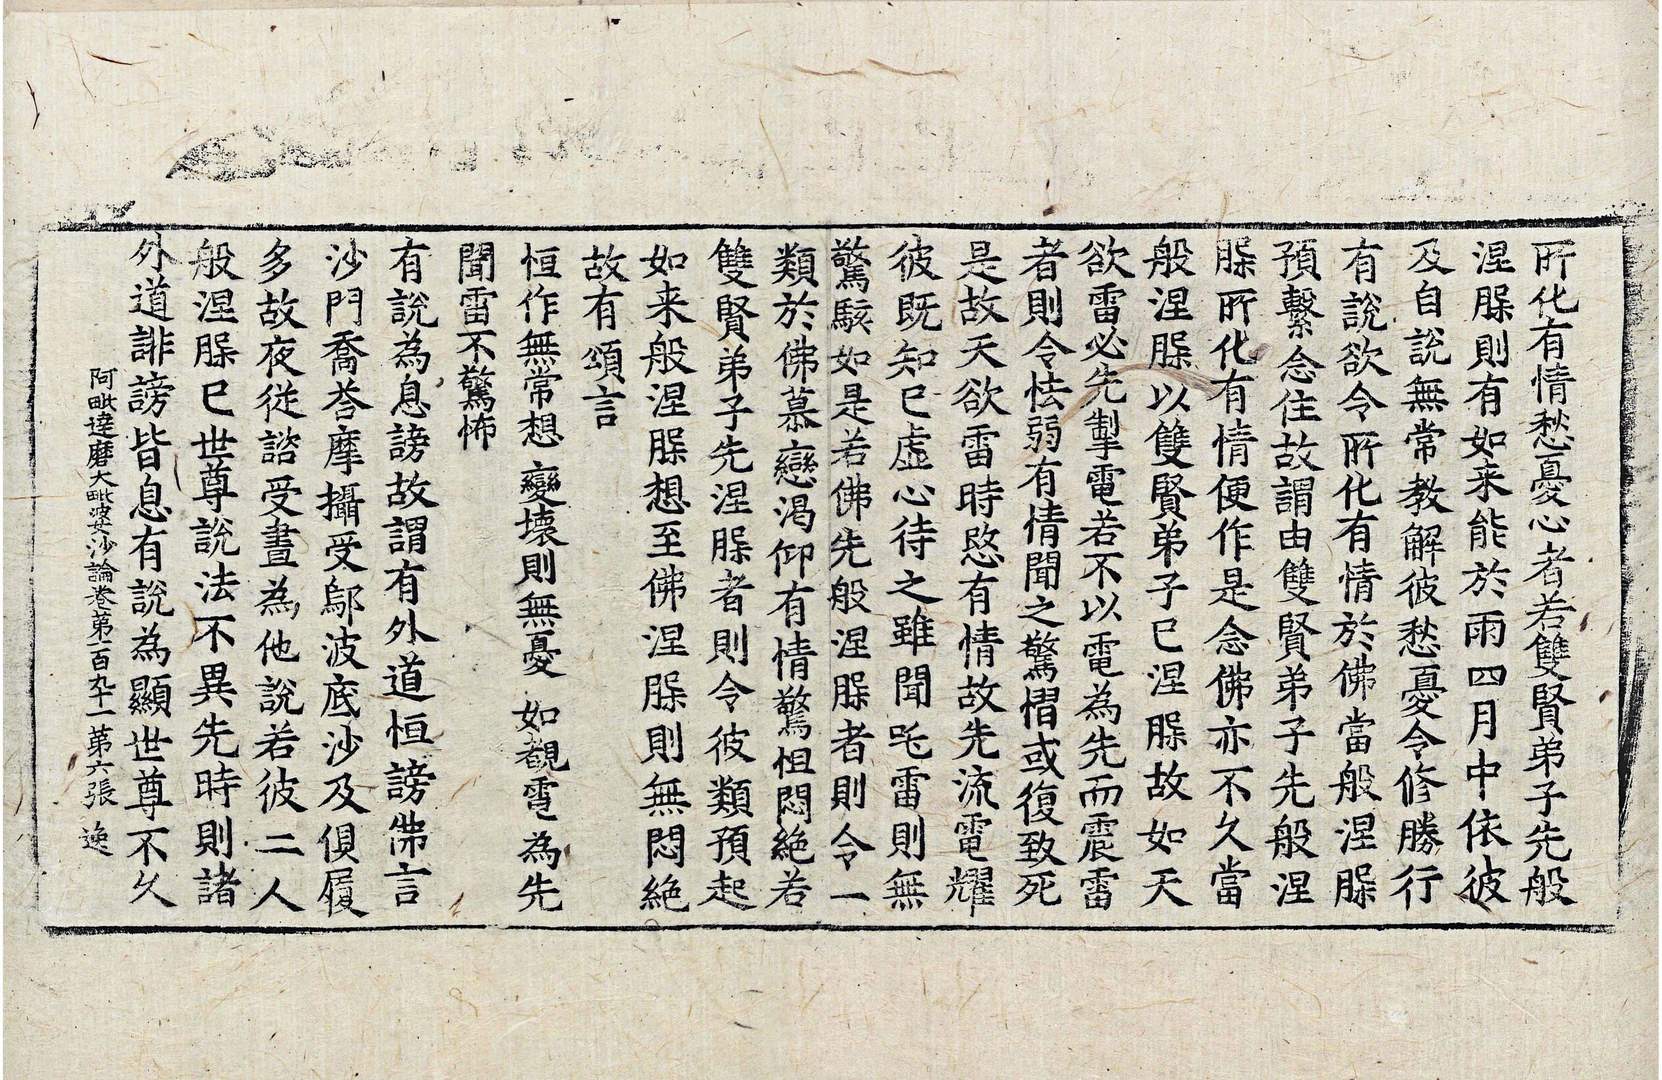 所化有情愁憂心者若雙賢弟子先般
涅脲則有如来能於雨四月中依彼
及自說無常教解彼愁憂令修勝行
有說欲令所化有情於佛當般涅脲
預繫念住故謂由雙賢弟子先般涅
脲所化有情便作是念佛亦不久當
般涅脲以雙賢弟子已涅脲故如天
欲雷必先掣電若不以電為先而震雷
者則令怯弱有情聞之驚慴或復致死
是故天欲雷時愍有情故先流電耀
彼既知已虛心待之雖聞吼雷則無
驚駭如是若佛先般涅脲者則令一
類於佛慕戀渴仰有情驚怛悶絶若
雙賢弟子先涅脲者則令彼類預起
如来般涅脲想至佛涅脲則無悶絶
故有頌言
恒作無常想 變壞則無憂 如覩電為先
聞雷不驚怖
有說為息謗故謂有外道恒謗佛言
沙門喬荅摩攝受鄔波底沙及俱履
多故夜從諮受晝為他說若彼二人
般涅脲已世尊說法不異先時則諸
外道誹謗皆息有說為顯世尊不久
阿毗達磨大毗婆沙論卷第一百九十一 第六張 逸